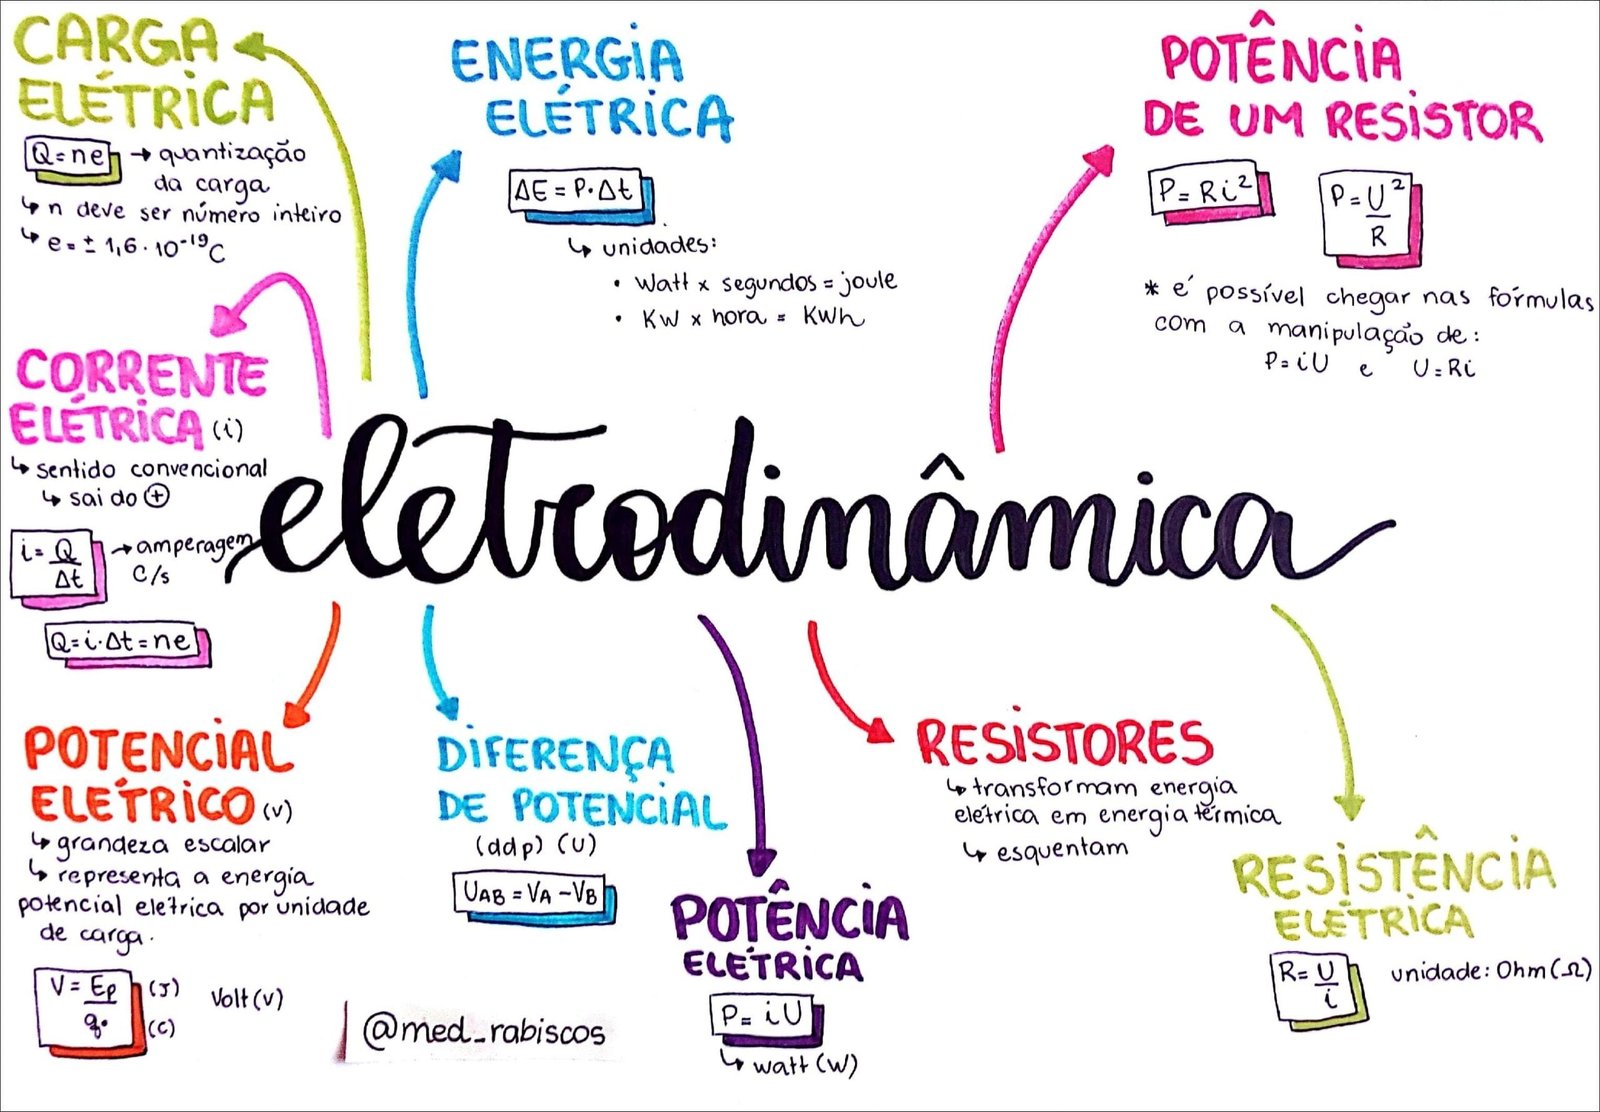 CARGA
ELÉTRICA
Q=ne → quantização
da carga
↳ n deve ser número inteiro
↳ e = ± 1,6 · 10⁻¹⁹C
ENERGIA
ELÉTRICA
ΔE = P·Δt
↳ unidades:
• Watt x segundos = joule
• KW x hora = KWh
POTÊNCIA
DE UM RESISTOR
P = Ri²
P = U²/R
* é possível chegar nas fórmulas
com a manipulação de:
P=iU e U=Ri
CORRENTE
ELÉTRICA (i)
↳ sentido convencional
↳ sai do ⊕
i = Q/Δt → amperagem
C/s
Q=i·Δt=ne
eletrodinâmica
POTENCIAL
ELÉTRICO (V)
↳ grandeza escalar
↳ representa a energia
potencial elétrica por unidade
de carga.
V = Ep/q· (J) (C) Volt (V)
DIFERENÇA
DE POTENCIAL
(ddp) (U)
UAB = VA - VB
@med_rabiscos
POTÊNCIA
ELÉTRICA
P= iU
↳ watt (W)
RESISTORES
↳ transformam energia
elétrica em energia térmica
↳ esquentam
RESISTÊNCIA
ELÉTRICA
R= U/i unidade: Ohm (Ω)